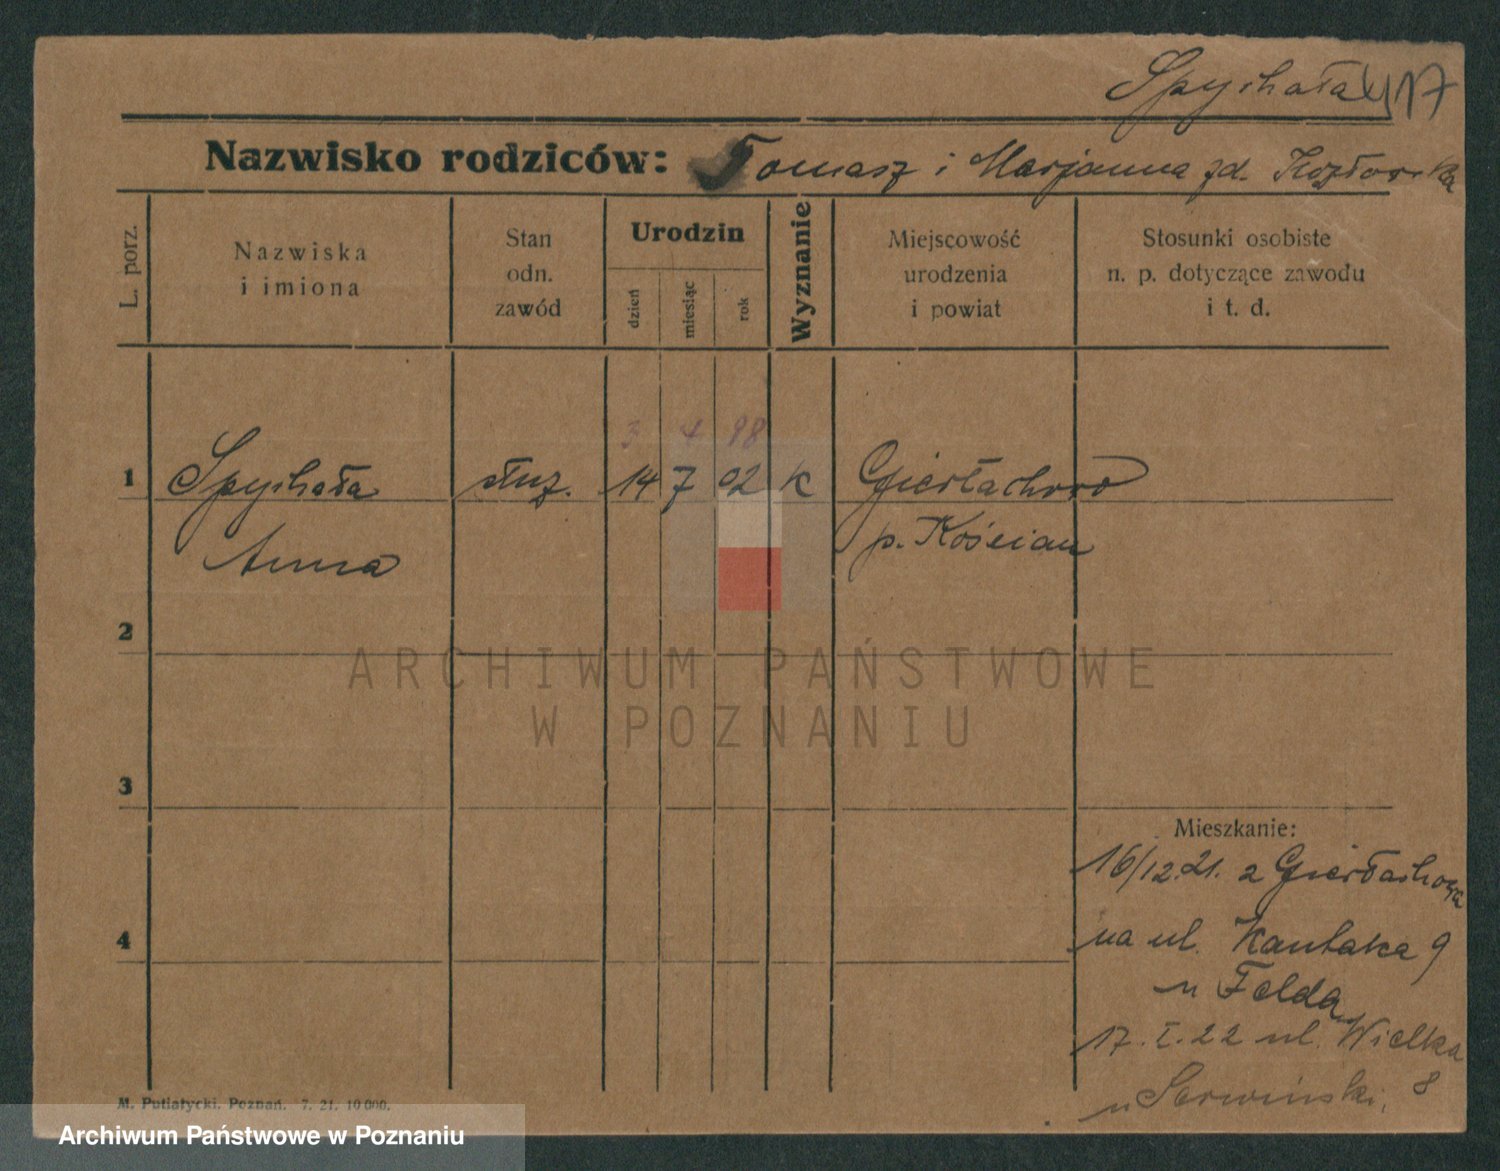 Spychała 417
Nazwisko rodziców: Tomasz i Marjanna zd. Kozłowska
L. porz.
Nazwiska
i imiona
Stan
odn.
zawód
Urodzin
dzień
miesiąc
rok
Wyznanie
Miejscowość
urodzenia
i powiat
Stosunki osobiste
n. p. dotyczące zawodu
i t. d.
3 4 98
1 Spychała służ. 14 7 02 k Gierłachowo
Anna p. Kościan
2
ARCHIWUM PAŃSTWOWE
W POZNANIU
3
Mieszkanie:
16/12.21. z Gierłachowa
4 na ul. Kantaka 9
u Felda
17.I.22 ul. Wielka
8
u
M. Putiatycki. Poznań. 7. 21. 10 000.
Archiwum Państwowe w Poznaniu